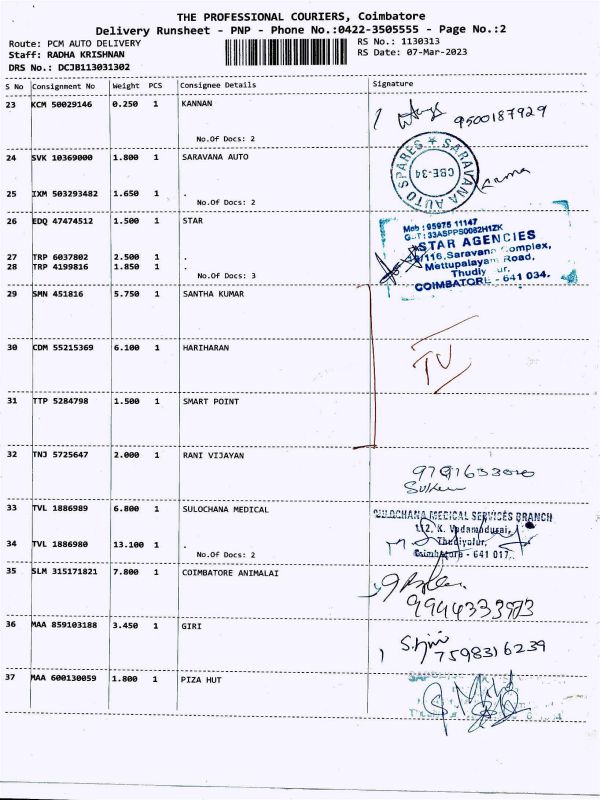 THE PROFESSIONAL COURIERS, Coimbatore
Delivery Runsheet - PNP - Phone No.:0422-3505555 - Page No.:2
Route: PCM AUTO DELIVERY
Staff: RADHA KRISHNAN
DRS No.: DCJB113031302
RS No.: 1130313
RS Date: 07-Mar-2023
S No Consignment No Weight PCS Consignee Details Signature
23 KCM 50029146 0.250 1 KANNAN
9500187929
No.Of Docs: 2
24 SVK 10369000 1.800 1 SARAVANA AUTO
SARAVANA AUTO SPARES
CBE-34
25 IXM 503293482 1.650 1 .
No.Of Docs: 2
26 EDQ 47474512 1.500 1 STAR
Mob : 95975 11147
33ASPPS0082H1ZK
STAR AGENCIES
/116,Saravana Complex,
Mettupalayam Road,
COIMBATORE - 641 034.
27 TRP 6037802 2.500 1 .
28 TRP 4199816 1.850 1 .
No.Of Docs: 3
29 SMN 451816 5.750 1 SANTHA KUMAR
30 CDM 55215369 6.100 1 HARIHARAN
TV
31 TTP 5284798 1.500 1 SMART POINT
32 TNJ 5725647 2.000 1 RANI VIJAYAN
33 TVL 1886989 6.800 1 SULOCHANA MEDICAL
SULOCHANA MEDICAL SERVICES BRANCH
112, K. Vadamadurai,
Thudiyalur,
Coimbatore - 641 017.
34 TVL 1886980 13.100 1 .
No.Of Docs: 2
35 SLM 315171821 7.800 1 COIMBATORE ANIMALAI
36 MAA 859103188 3.450 1 GIRI
7598316239
37 MAA 600130059 1.800 1 PIZA HUT